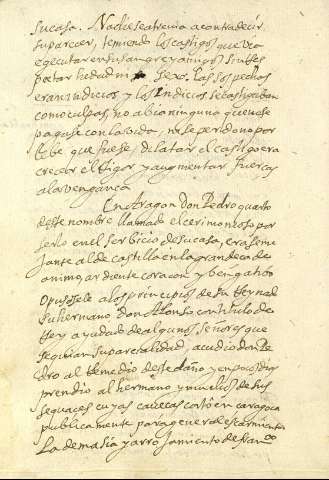 su casa. Nadie se atrevia a contradecir
su parecer, temiendo los castigos que veo
egecutar en su sangre y amigos sin res
petar hedad ni sexo. las sospechas
eran indicios y los Indicios se castigaban
como culpas, no abia ninguna que no se
pagase con la vida, no se perdono por
lebe que fuese, dilatar el castigo era
crecer el rigor y augmentar fuerças
a la vengança
En Aragon Don Pedro quarto
deste nombre llamado el cerimonioso por
serlo en el serbicio de su casa, era seme
jante al de castilla en la grandeça de
animo, ardiente coraçon y bengatibo
Opusosele a los principios de su Reynado
su hermano Don Alonso con titulo de
Rey ayudado de algunos señores que
seguian su parcialidad, acudio don Pe
dro al remedio deste daño y en pocos dias
prendio al hermano y muchos de sus
sequaces cuyas caveças corto en caragoça
publicamente para general escarmiento
La demasia y arrojamiento de